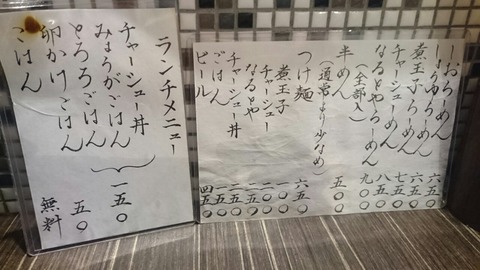 しおらーめん 六五〇
しょうゆらーめん 六五〇
煮玉子らーめん 七五〇
チャーシューめん 八五〇
なるとやらーめん 九〇〇
(全部入)
半めん 五〇〇
(通常より少なめ)
つけ麺 六五〇
煮玉子 一〇〇
チャーシュー
なるとや
チャーシュー丼
ごはん
ビール 四五〇
ランチメニュー
チャーシュー丼
みょうがごはん
とろろごはん
一五〇
卵かけごはん 五〇
ごはん 無料